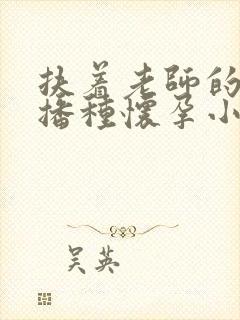 扶着老師的
播種懷孕小
吴英